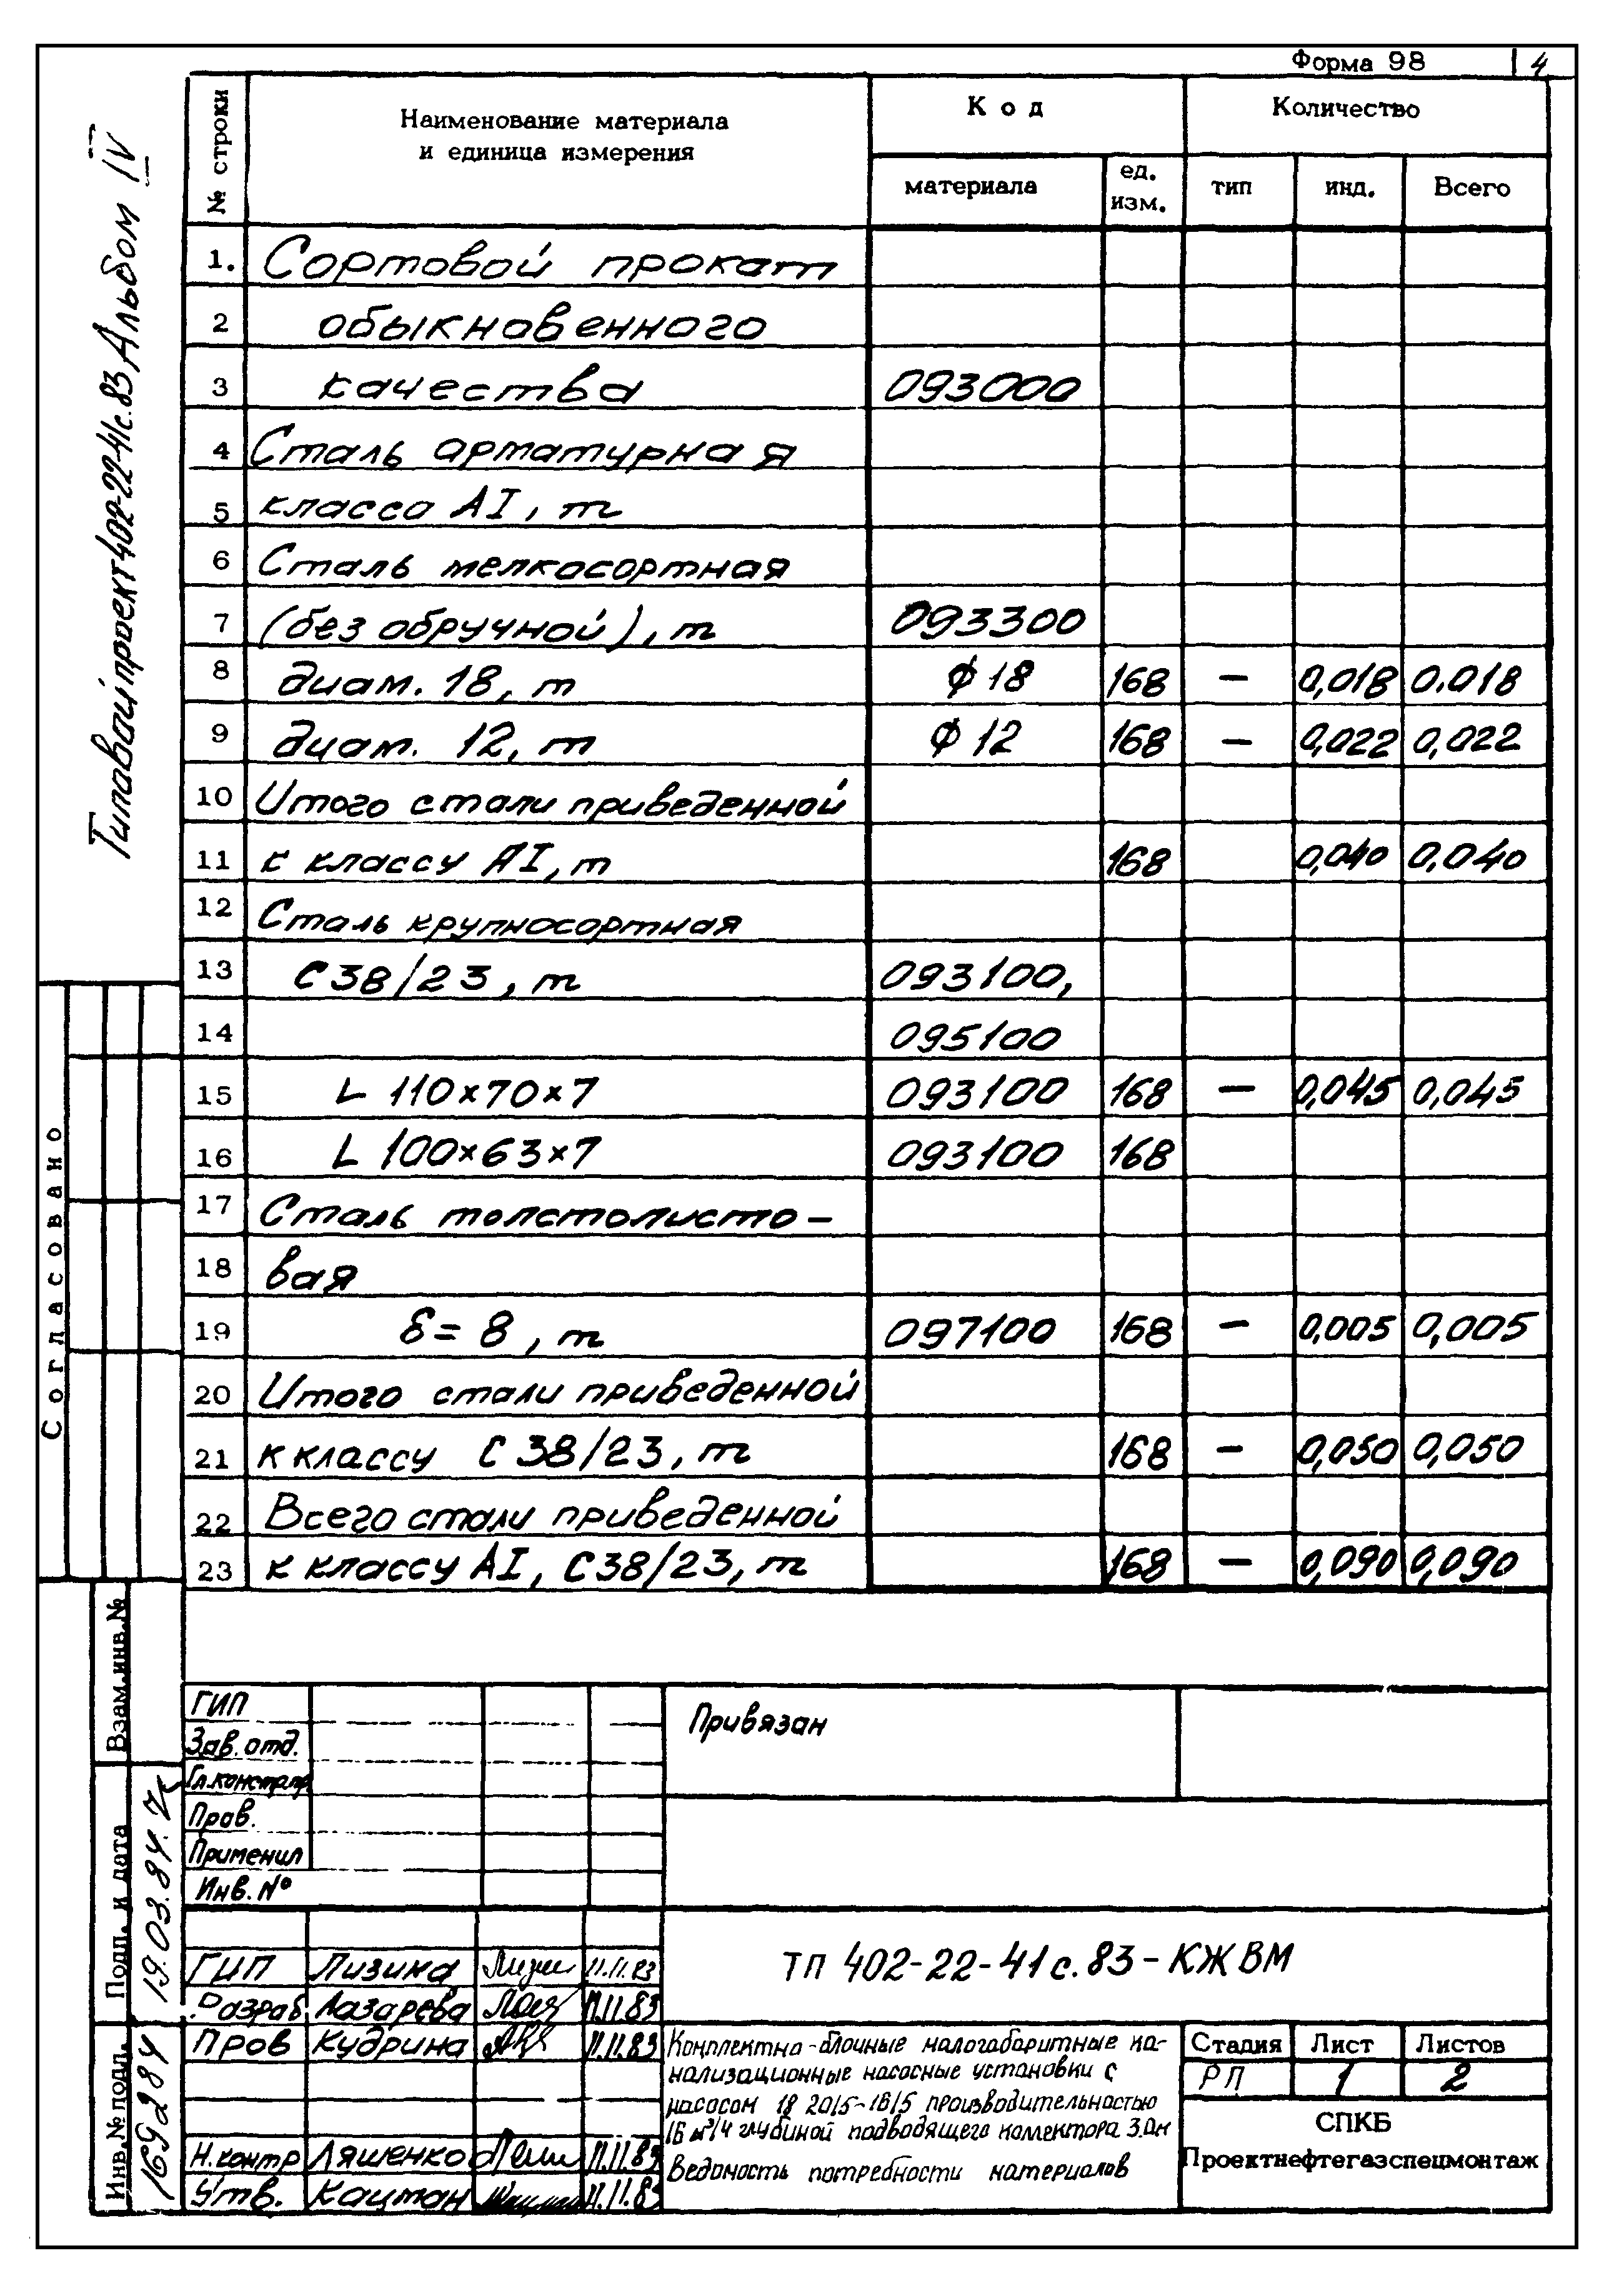 Форма 98
4
Типовой проект 402-22-41с.83, Альбом IV
№ строки
Наименование материала
и единица измерения
Код
Количество
материала
ед.
изм.
тип
инд.
Всего
1. Сортовой прокат
2 обыкновенного
3 качества 093000
4 Сталь арматурная
5 класса АI, т
6 Сталь мелкосортная
7 (без обручной), т 093300
8 диам. 18, т ϕ 18 168 – 0,018 0.018
9 диам. 12, т ϕ 12 168 – 0,022 0,022
10 Итого стали приведенной
11 к классу АI, т 168 0,040 0,040
12 Сталь крупносортная
13 С 38/23, т 093100,
14 095100
15 L 110×70×7 093100 168 – 0,045 0,045
16 L 100×63×7 093100 168
17 Сталь толстолисто-
18 вая
19 δ = 8, т 097100 168 – 0,005 0,005
20 Итого стали приведенной
21 к классу С 38/23, т 168 – 0,050 0,050
22 Всего стали приведенной
23 к классу АI, С38/23, т 168 – 0,090 0,090
Согласовано
Взам.инв.№
Подп. и дата
19.03.84.
Инв.№подл.
169284
ГИП
Зав. отд.
Гл.констр
Пров.
Применил
Инв. №
Привязан
ГИП Лизина 11.11.83
Разраб. Лазарева 11.11.83
Пров Кудрина 11.11.83
Н.контр Ляшенко 11.11.83
Утв. Кацман 11.11.83
ТП 402-22-41с.83-КЖ ВМ
Комплектно-блочные малогабаритные ка-
нализационные насосные установки с
насосом 18 20/5-16/5 производительностью
16 м³/ч глубиной подводящего коллектора 3.0м
Ведомость потребности материалов
Стадия Лист Листов
РП 1 2
СПКБ
Проектнефтегазспецмонтаж